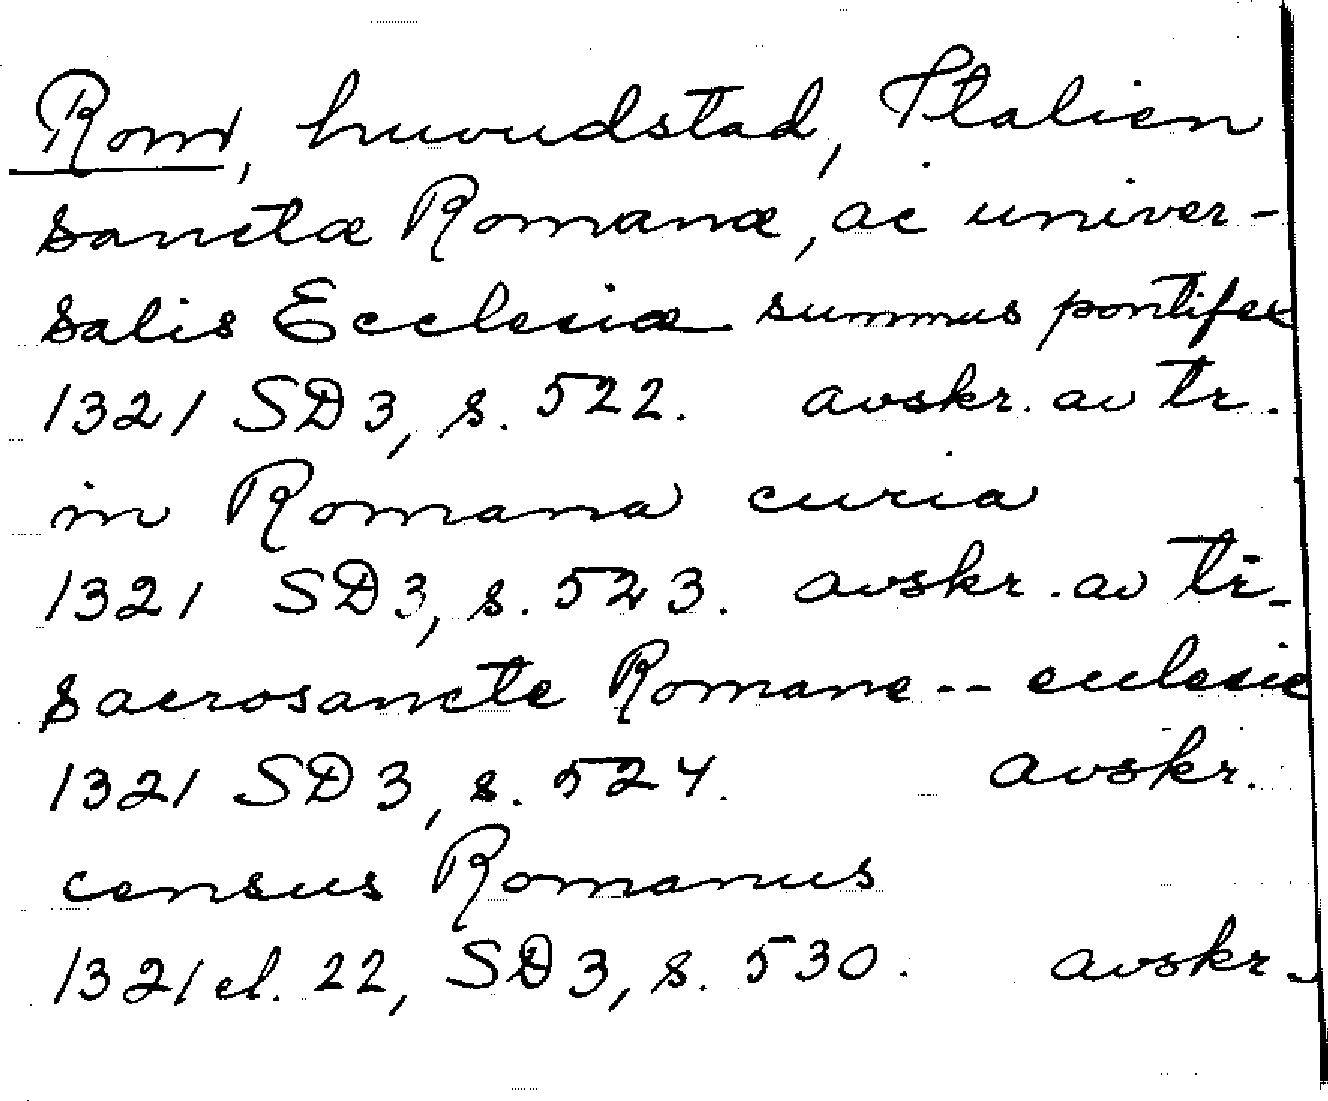 Rom, huvudstad, Italien
Sanctæ Romanæ, ac univer-
salis Ecclesiæ summus pontifex
1321 SD 3, s. 522. avskr. av tr.
in Romana curia
1321 SD 3, s. 523. avskr. av tr.
Sacrosancte Romane -- ecclesie
1321 SD 3, s. 524. avskr.
census Romanus
1321 el. 22, SD 3, s. 530. avskr.